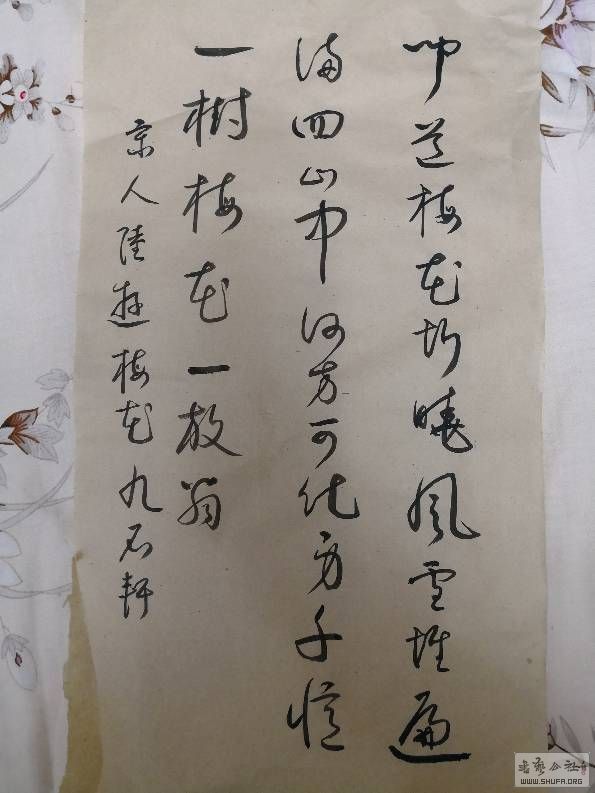 闻道梅花坼晓风雪堆遍
满四山中何方可化身千亿
一树梅花一放翁
宋人陆游梅花九石轩
书艺公社
WWW.SHUFA.ORG